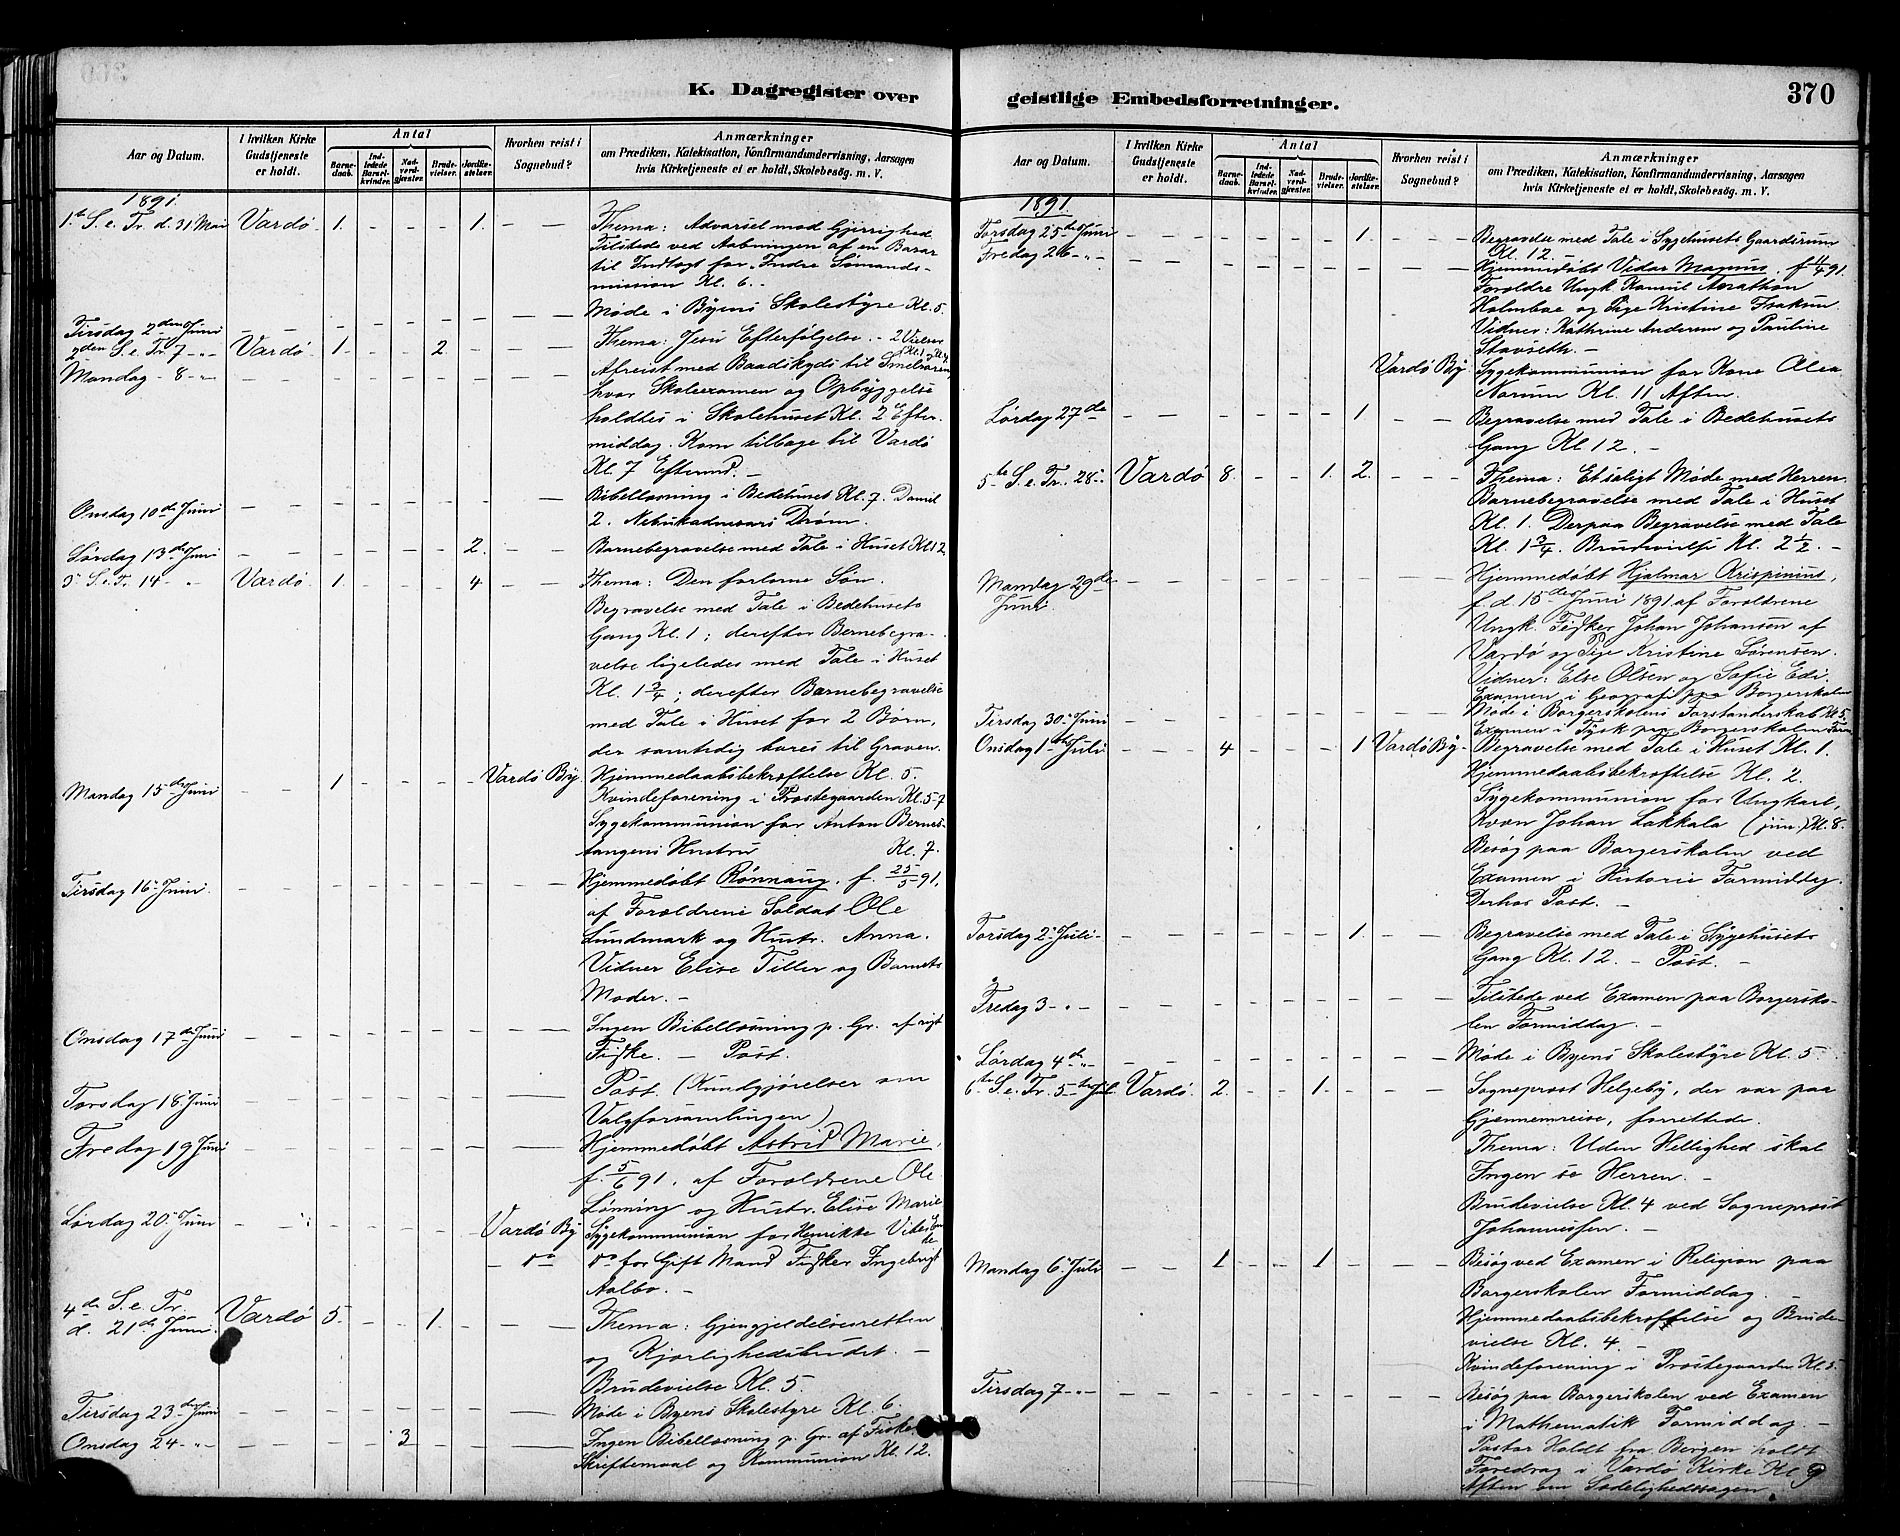 K. Dagregister over
Aar og Datum.
I hvilken Kirke Gudstjeneste er holdt.
Antal
Barnedaab.
Indledede Barselkvinder.
Nadverdgjæster.
Brudevielser.
Jordfæstelser.
Hvorhen reist i Sognebud?
Anmærkninger
om Prædiken, Katekisation, Konfirmandundervisning, Aarsagen
hvis Kirketjeneste ei er holdt, Skolebesøg. m. V.
1891.
1ste S. e. Tr. d. 31 Mai Vardø. 1. - - - 1. - - Thema: Advarsel mod Gjerrighed
Tilstede ved Aabningen af en Basar
til Indtægt for "Indre Sømands-
mission Kl. 6. -
Tirsdag 2den Juni - - - - - - - - - Møde i Byens Skolestyre Kl. 5.
2den S. e. Tr. 7 - " - Vardø. 1. - - 2. - - - Thema: Jesu Efterfølgelse. - 2 Vielser
Mandag - 8 - " - - - - - - - - - - Afreist med Baadskyds til Smelroren,
hvor Skoleexamen og Opbyggelse
holdtes i Skolehuset Kl. 2 Efter-
middag. Kom tilbage til Vardø
Kl. 7 Efterm. -
Onsdag 10de Juni - - - - - - - - - Bibellæsning i Bedehuset Kl. 7. Daniel
2. Nebukadnesars Drøm. -
Lørdag 13de Juni - - - - - - 2. - - Barnebegravelse med Tale i Huset Kl 12
3" S. e. Tr. 14 - " Vardø. 1. - - - 4. - - Thema: Den forlorne Søn.
Begravelse med Tale i Bedehusets
Gang Kl. 1; derefter Bernebegra-
velse ligeledes med Tale i Huset
Kl. 1 3/4; derefter Barnebegravelse
med Tale i Huset for 2 Børn,
der samtidig bares til Graven.
Mandag 15de Juni - - 1 - - - - Vardø By. Hjemmedaabsbekræftelse Kl. 5.
Kvindeforening i Prostegaarden Kl. 5-7
Sygekommunion for Anton Bernes-
tangens Hustru Kl. 7.
Tirsdag 16 Juni. - - - - - - - - - Hjemmedøbt Rønnaug, f. 25/5 91.
af Forældrene Soldat Ole
Lundmark og Hustr. Anna.
Vidner Elise Tiller og Barnets
Moder. -
Onsdag 17de Juni - - - - - - - - - Ingen Bibellæsning p. Gr. af rigt
Fiske. - Post.
Torsdag 18 Juni - - - - - - - Post. (Kundgjørelser om
Valgforsamlingen)
Fredag 19 Juni - - - - - - - - Hjemmedøbt Astrid Marie,
f. 5/6 91. af Forældrene Ole
Lønning og Hustr. Elise Marie
Lørdag 20 Juni - - - - - - - Vardø By Sygekommunion for Henrikke Vibe
- do do for Gift Mand Fisker Ingebrigt
Aalbo. -
4de S. e. Tr.
d. 21de Juni. Vardø 5. - - 1. - - - Thema: Gjengjeldelsesretten
og Kjærlighedsbudet. -
Brudevielse Kl. 5.
Tirsdag 23de Juni - - - - - - - - Møde i Byens Skolestyre Kl. 6.
Onsdag 24 - " - - - - - 3 - - - - Ingen Bibellæsning p. Gr. af Fiske
Skriftemaal og Kommunion Kl. 12.
geistlige Embedsforretninger.
370
Aar og Datum.
I hvilken Kirke Gudstjeneste er holdt.
Antal
Barnedaab.
Indledede Barselkvinder.
Nadverdgjæster.
Brudevielser.
Jordfæstelser.
Hvorhen reist i Sognebud?
Anmærkninger
om Prædiken, Katekisation, Konfirmandundervisning, Aarsagen
hvis Kirketjeneste ei er holdt, Skolebesøg m. V.
1891.
Torsdag 25de Juni - - - - - - 1. - - Begravelse med Tale i Sygehusets Gaardsrum
Kl. 12. -
Fredag 26 - " - - - - - - - - - - Hjemmedøbt Vidar Magnus. f 11/4 91.
Forældre Ungk Konsul
Holmboe og Pige Kristine
Vidner: Kathrine Andersen og Pauline
Stavseth. -
Vardø By. Sygekommunion for Kone
Norum Kl. 11 Aften. -
Lørdag 27de - - - - - - 1 - - Begravelse med Tale i Bedehusets
Gang Kl. 12. -
5te S. e. Tr. 28 " Vardø 8. - - 1. 2. - - - Thema: Et saligt Møde med Herren.
Barnebegravelse med Tale i Huset
Kl. 1. Derpaa Begravelse med Tale
Kl. 1 3/4. Brudevielse Kl. 2 1/2. -
Mandag 29de
Juni - - - - - - - - - - Hjemmedøbt Hjalmar Krispinius,
f. d. 15de Juni 1891 af Forældrene
Ungk. Fisker Johan Johansen af
Vardø og Pige Kristine Sørensen.
Vidner: Else Olsen og Sofie
Examen i Geografi paa Borgerskolen
Tirsdag 30 Juni - - - - - - - - - Møde i Borgerskolens Forstanderskab Kl. 5.
Examen i Tysk paa Borgerskolen Form
Onsdag 1ste Juli - - 4 - - - 1 Vardø By - Begravelse med Tale i Huset Kl. 1.
Hjemmedaabsbekræftelse Kl. 2.
Sygekommunion for Ungkarl,
Kvæn Johan Lakkala (jun.) Kl. 8.
Besøg paa Borgerskolen ved
Examen i Historie Formiddag.
Derhos Post. -
Torsdag 2 Juli - - - - - - - 1. - - Begravelse med Tale i Sygehusets
Gang Kl. 12. - Post. -
Fredag 3 - " - - - - - - - - - - Tilstede ved Examen paa Borgersko-
len Formiddag. -
Lørdag 4de " - - - - - - - - - Møde i Byens Skolestyre Kl. 5
6te S. e. Tr. 5te Jul. Vardø. 2. - - 1. - - - Sogneprost Helgeby, der var paa
Gjennemreise, forrettede.
Thema: Uden Hellighed skal
Ingen se Herren. -
Brudevielse Kl. 4 ved Sogneprost
Johannessen. -
Mandag 6 Juli - - 1 - - 1 - - - Besøg ved Examen i Religion paa
Borgerskolen Formiddag. -
Hjemmedaabsbekræftelse og Brude-
vielse Kl. 4. -
Kvindeforening i Prostegaarden Kl. 5.
Tirsdag 7 - " - - - - - - - - - - Besøg paa Borgerskolen ved Examen
i Mathematik Formiddag. -
Pastor Holdt fra Bergen holdt
Foredrag i Vardø Kirke Kl 9
Aften om Sædelighedssagen.